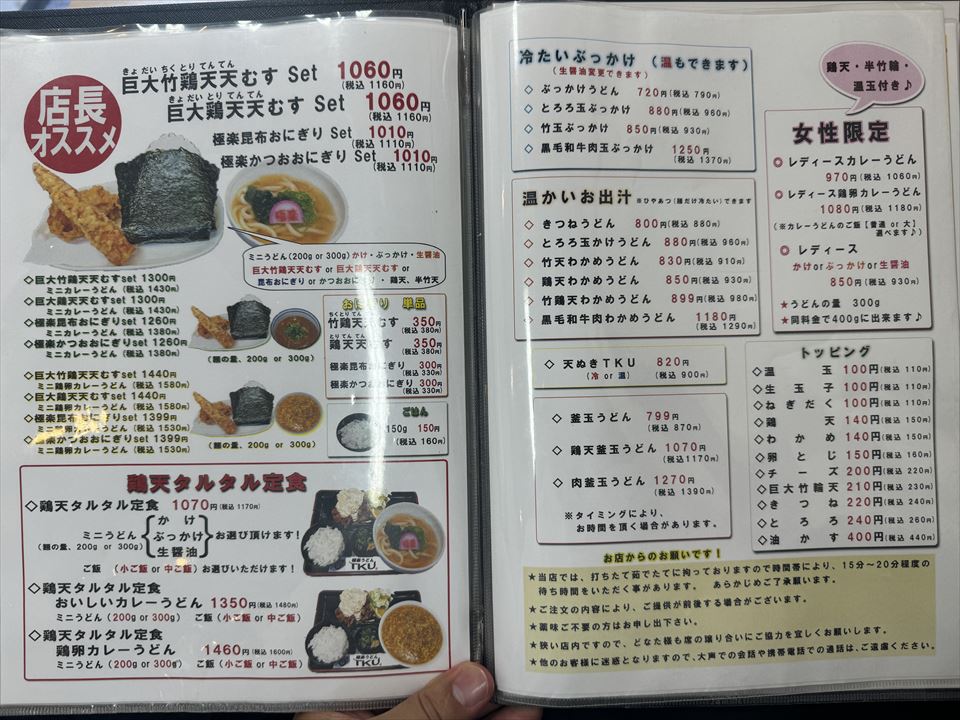 店長
オススメ
きょ だい ちく とり てん てん
巨大竹鶏天天むす Set 1060円
(税込 1160円)
きょ だい とり てん てん
巨大鶏天天むす Set 1060円
(税込 1160円)
極楽昆布おにぎり Set 1010円
(税込 1110円)
極楽かつおおにぎり Set 1010円
(税込 1110円)
ミニうどん(200g or 300g) かけ・ぶっかけ・生醤油
巨大竹鶏天天むす or 巨大鶏天天むす or
昆布おにぎり or かつおおにぎり・鶏天、半竹天
◇巨大竹鶏天天むすset 1300円
ミニカレーうどん (税込 1430円)
◇巨大鶏天天むすset 1300円
ミニカレーうどん (税込 1430円)
◇極楽昆布おにぎりset 1260円
ミニカレーうどん (税込 1380円)
◇極楽かつおおにぎりset 1260円
ミニカレーうどん (税込 1380円)
(麺の量、200g or 300g)
◇巨大竹鶏天天むすset 1440円
ミニ鶏卵カレーうどん (税込 1580円)
◇巨大鶏天天むすset 1440円
ミニ鶏卵カレーうどん (税込 1580円)
◇極楽昆布おにぎりset 1399円
ミニ鶏卵カレーうどん (税込 1530円)
◇極楽かつおおにぎりset 1399円
ミニ鶏卵カレーうどん (税込 1530円)
(麺の量、200g or 300g)
おにぎり 単品
ちくとり てん てん
竹鶏天天むす 350円
(税込 380円)
とり てん てん
鶏天天むす 350円
(税込 380円)
極楽昆布おにぎり 300円
(税込 330円)
極楽かつおおにぎり 300円
(税込 330円)
ごはん
150g 150円
(税込 160円)
鶏天タルタル定食
◇鶏天タルタル定食 1070円(税込 1170円)
ミニうどん
(麺の量、200g or 300g)
かけ
ぶっかけ
生醤油
お選び頂けます!
ご飯 (小ご飯 or 中ご飯) お選びいただけます!
◇鶏天タルタル定食
おいしいカレーうどん 1350円(税込 1480円)
ミニうどん (200g or 300g) ご飯 (小ご飯 or 中ご飯)
◇鶏天タルタル定食
鶏卵カレーうどん 1460円(税込 1600円)
ミニうどん (200g or 300g) ご飯 (小ご飯 or 中ご飯)
極楽うどん
TKU
極楽うどん
TKU
冷たいぶっかけ (温もできます)
(生醤油変更できます)
◇ ぶっかけうどん 720円(税込 790円)
◇ とろろ玉ぶっかけ 880円(税込 960円)
◇ 竹玉ぶっかけ 850円(税込 930円)
◇ 黒毛和牛肉玉ぶっかけ 1250円
(税込 1370円)
温かいお出汁 ※ひやあつ(麺だけ冷たい)できます
◇ きつねうどん 800円(税込 880円)
◇ とろろ玉かけうどん 880円(税込 960円)
◇ 竹天わかめうどん 830円(税込 910円)
◇ 鶏天わかめうどん 850円(税込 930円)
◇ 竹鶏天わかめうどん 899円(税込 980円)
◇ 黒毛和牛肉わかめうどん 1180円
(税込 1290円)
◇ 天ぬきTKU 820円
(冷 or 温) (税込 900円)
◇ 釜玉うどん 799円
(税込 870円)
◇ 鶏天釜玉うどん 1070円
(税込1170円)
◇ 肉釜玉うどん 1270円
(税込 1390円)
※タイミングにより、
お時間を頂く場合があります。
鶏天・半竹輪・
温玉付き♪
女性限定
◎ レディースカレーうどん
970円(税込 1060円)
◎ レディース鶏卵カレーうどん
1080円(税込 1180円)
(※カレーうどんのご飯【普通 or 大】
選べます♪)
◎ レディース
かけorぶっかけor生醤油
850円(税込 930円)
★うどんの量 300g
★同料金で400gに出来ます♪
トッピング
◇温玉 100円(税込 110円)
◇生玉子 100円(税込 110円)
◇ねぎだく 100円(税込 110円)
◇鶏天 140円(税込 150円)
◇わかめ 140円(税込 150円)
◇卵とじ 150円(税込 160円)
◇チーズ 200円(税込 220円)
◇巨大竹輪天 210円(税込 230円)
◇きつね 220円(税込 240円)
◇とろろ 240円(税込 260円)
◇油かす 400円(税込 440円)
お店からのお願いです!
★当店では、打ちたて茹でたてに拘っておりますので時間帯により、15分~20分程度の
待ち時間をいただく事があります。 あらかじめご了承願います。
★ご注文の内容により、ご提供が前後する場合がございます。
★薬味ご不要の方はお申し出下さい。
★狭い店内ですので、どなた様も席の譲り合いにご協力を宜しくお願いします。
★他のお客様に迷惑となりますので、大声での会話や携帯電話での通話は、ご遠慮ください。